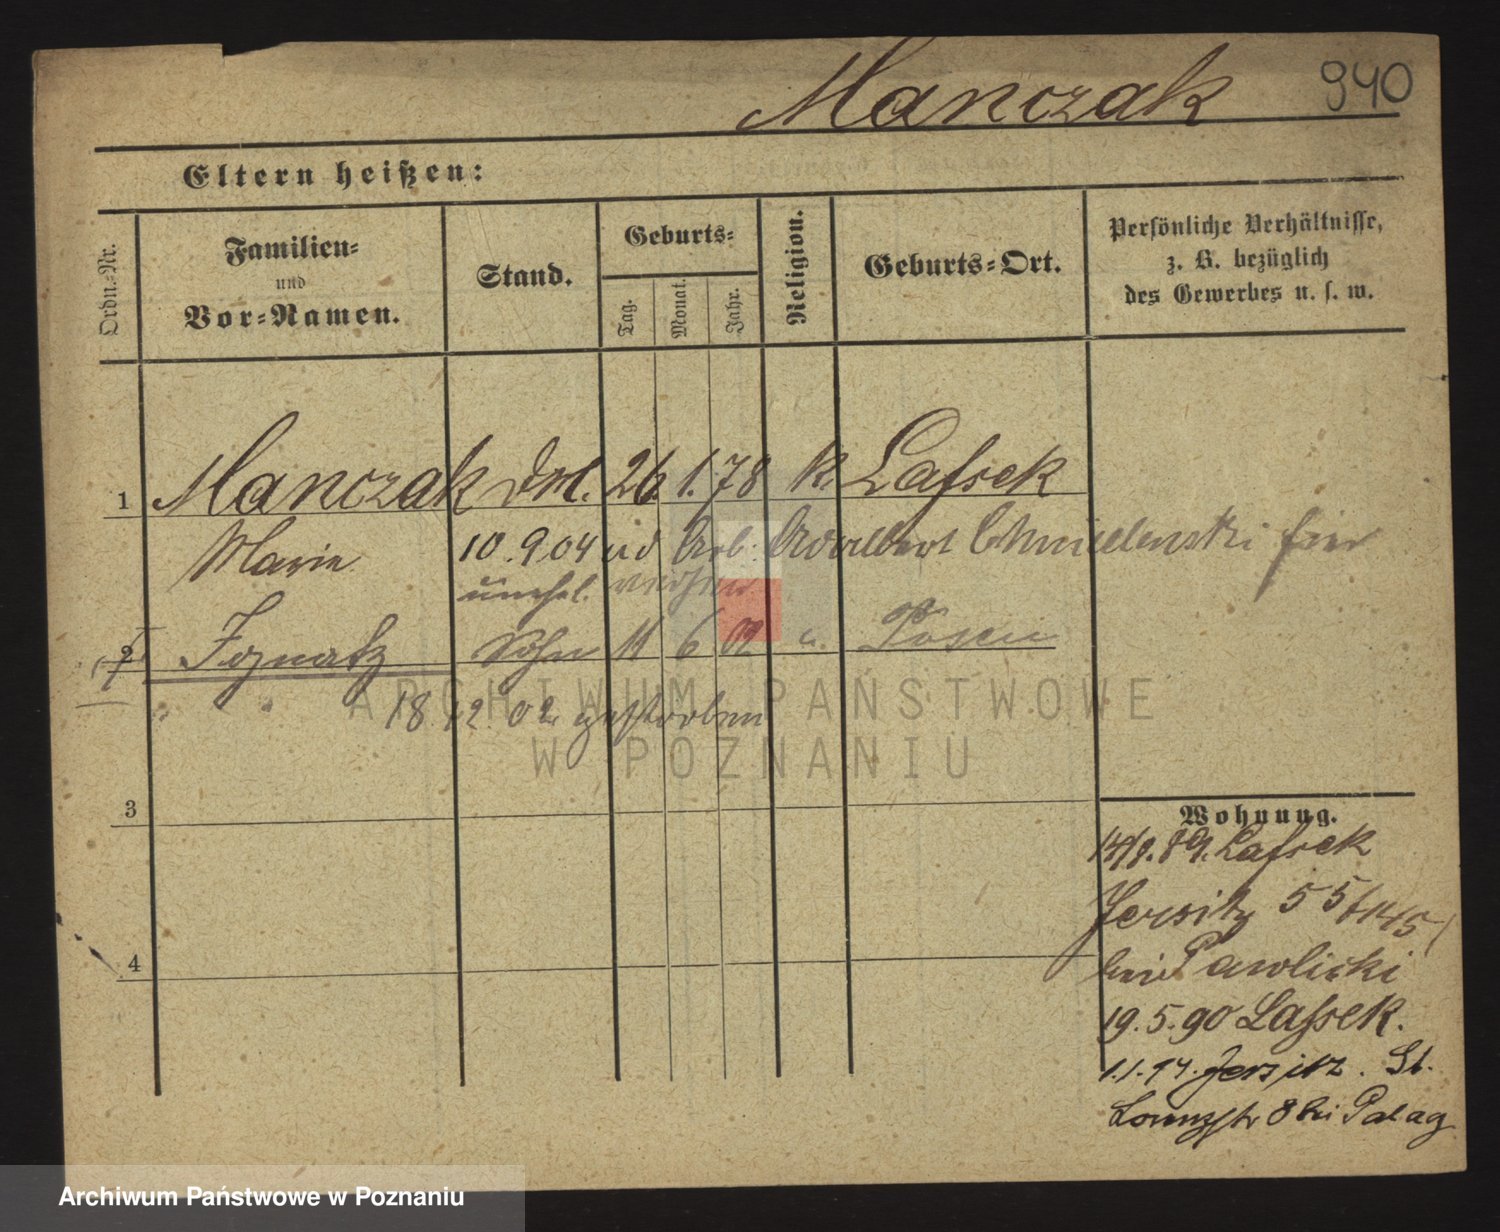 Manczak 940
Eltern heißen:
Ordn.-Nr.
Familien-
und
Vor-Namen.
Stand.
Geburts-
Tag.
Monat.
Jahr.
Religion.
Geburts-Ort.
Persönliche Verhältnisse,
z. B. bezüglich
des Gewerbes u. s. w.
1 Manczak 26 1. 78 k. Lassek
Marie 10. 9. 04 Arb. Adalbert Chmielenski hier
unehl.
2 Ignatz Sohn 11 6 02 Posen
18 12 02 gestorben
3
4
Wohnung.
89. Lassek
Jersitz 55
bei Pawlicki
19. 5. 90 Lassek.
1. 1. 94. Jersitz. St.
Lorenzstr 8 bei Palag
ARCHIWUM PAŃSTWOWE
W POZNANIU
Archiwum Państwowe w Poznaniu